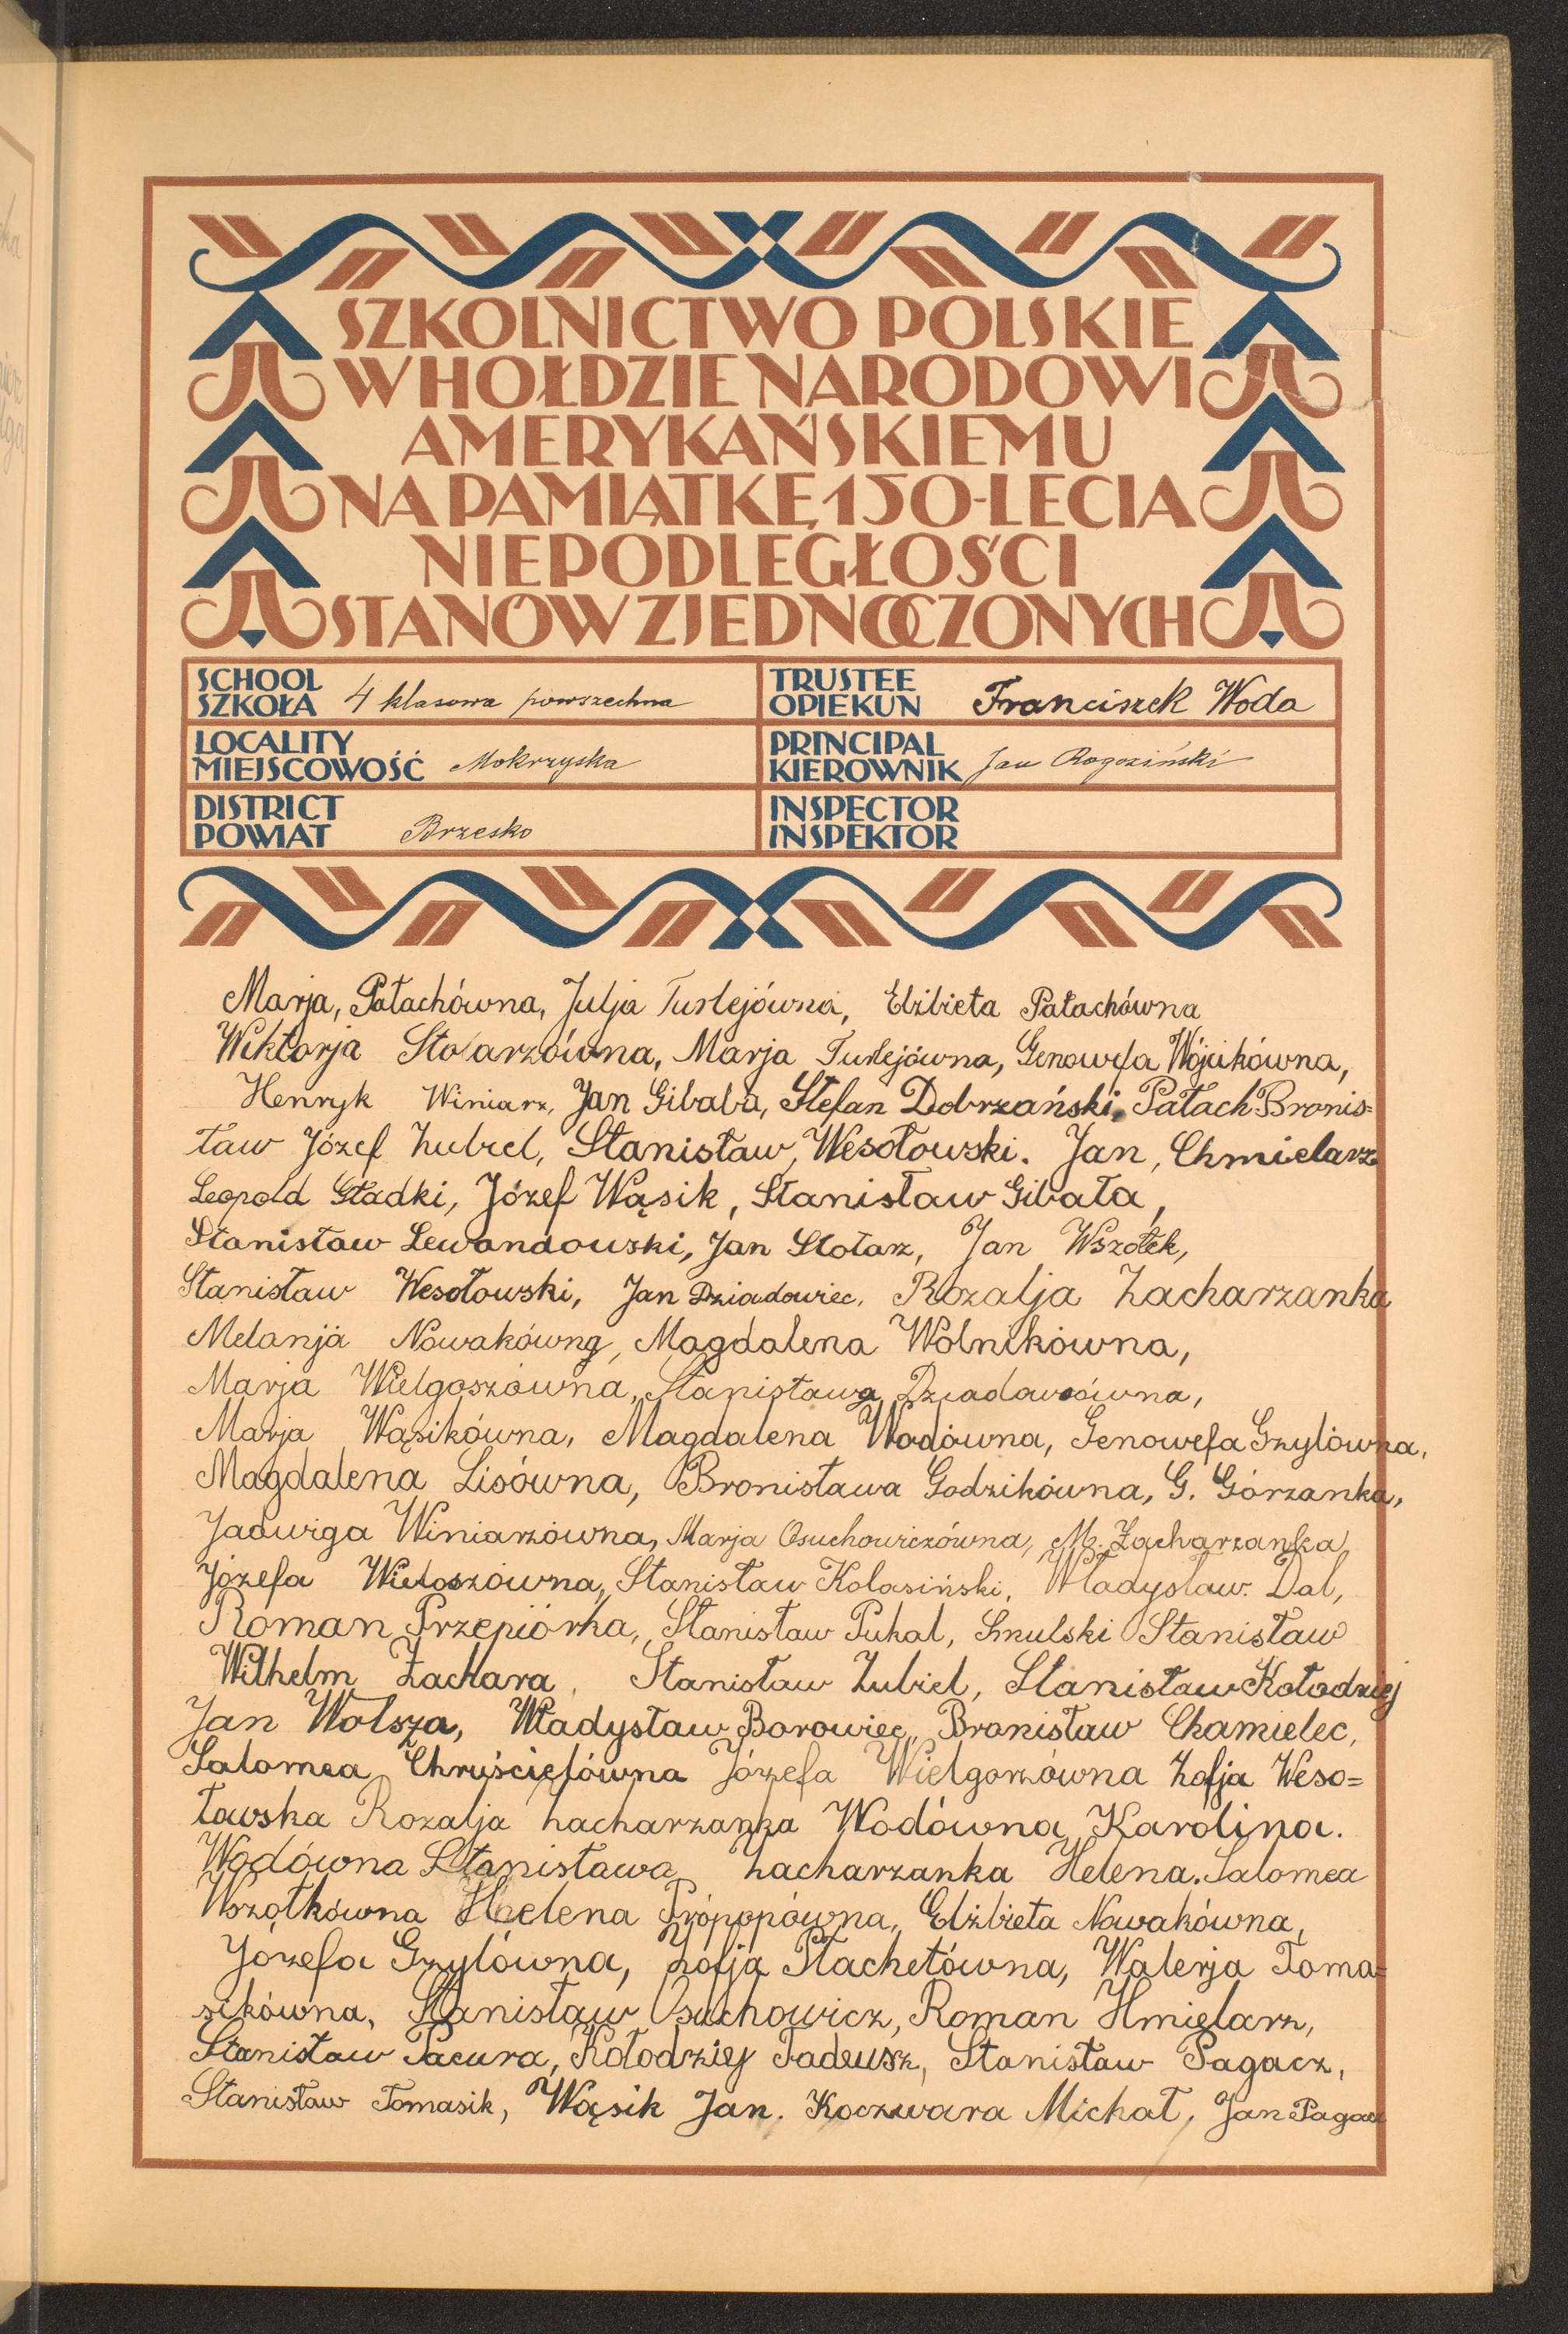 SZKOLNICTWO POLSKIE
W HOŁDZIE NARODOWI
AMERYKAŃSKIEMU
NA PAMIĄTKĘ 150-LECIA
NIEPODLEGŁOŚCI
STANÓW ZJEDNOCZONYCH
SCHOOL
SZKOŁA 4 klasowa powszechna
TRUSTEE
OPIEKUN Franciszek Woda
LOCALITY
MIEJSCOWOŚĆ Mokrzyska
PRINCIPAL
KIEROWNIK Jan Rogoziński
DISTRICT
POWIAT Brzesko
INSPECTOR
INSPEKTOR
Marja, Pałachówna, Julja Turlejówna, Elżbieta Pałachówna
Wiktorja Stolarzówna, Marja Turlejówna, Genowefa Wójcikówna,
Henryk Winiarz, Jan Gibała, Stefan Dobrzański, Pałach Bronis=
ław Józef Zubel, Stanisław, Wesołowski. Jan, Chmielarz
Leopold Gładki, Józef Wąsik, Stanisław Gibała,
Stanisław Lewandowski, Jan Stolarz, Jan Wszołek,
Stanisław Wesołowski, Jan Dziadowiec, Rozalja Zacharzanka
Melanja Nowakówna, Magdalena Wolnikówna,
Marja Wielgoszówna, Stanisława Dziadowcówna,
Marja Wąsikówna, Magdalena Wodówna, Genowefa Gzylówna,
Magdalena Lisówna, Bronisława Godzikówna, G. Górzanka,
Jadwiga Winiarzówna, Marja Osuchowiczówna, M. Zacharzanka,
Józefa Wielgoszówna, Stanisław Kolasiński, Władysław. Dal,
Roman Przepiórka, Stanisław Puhal, Smulski Stanisław
Wilhelm Zachara, Stanisław Zubel, Stanisław Kołodziej
Jan Wolsza, Władysław Borowiec, Bronisław Chamielec,
Salomea Chruścielówna Józefa Wielgorzówna Zofja Weso=
łowska Rozalja Zacharzanka Wodówna Karolina.
Wodówna Stanisława Zacharzanka Helena. Salomea
Wszołkówna Helena Própopówna, Elżbieta Nowakówna,
Józefa Gzylówna, Zofja Stachetówna, Walerja Toma=
sikówna, Stanisław Osuchowicz, Roman Hmielarz,
Stanisław Pacura, Kołodziej Tadeusz, Stanisław Pagacz,
Stanisław Tomasik, Wąsik Jan. Koczwara Michał, Jan Pagacz